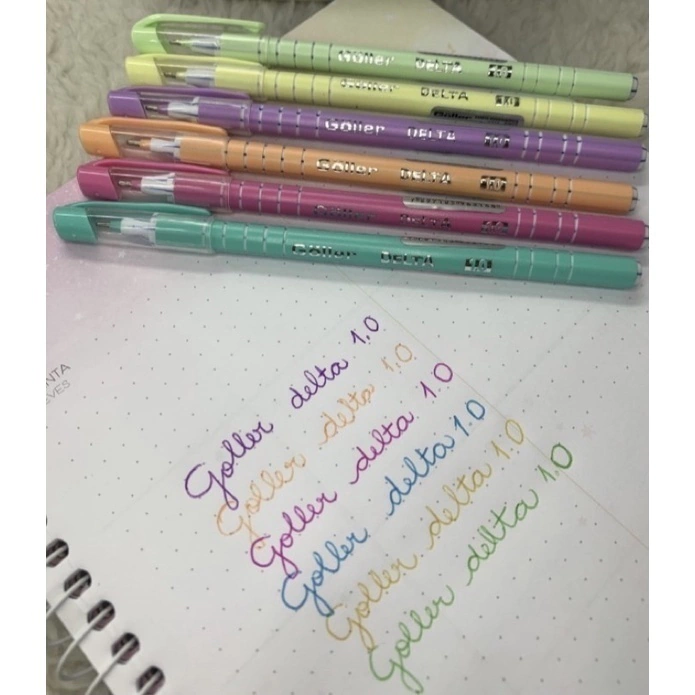 Göller DELTA 1.0
Göller DELTA 1.0
Göller DELTA 1.0
Göller DELTA 1.0
Göller DELTA 1.0
Göller DELTA 1.0
NTA
EVES
Goller delta 1.0
Goller delta 1.0
Goller delta 1.0
Goller delta 1.0
Goller delta 1.0
Goller delta 1.0